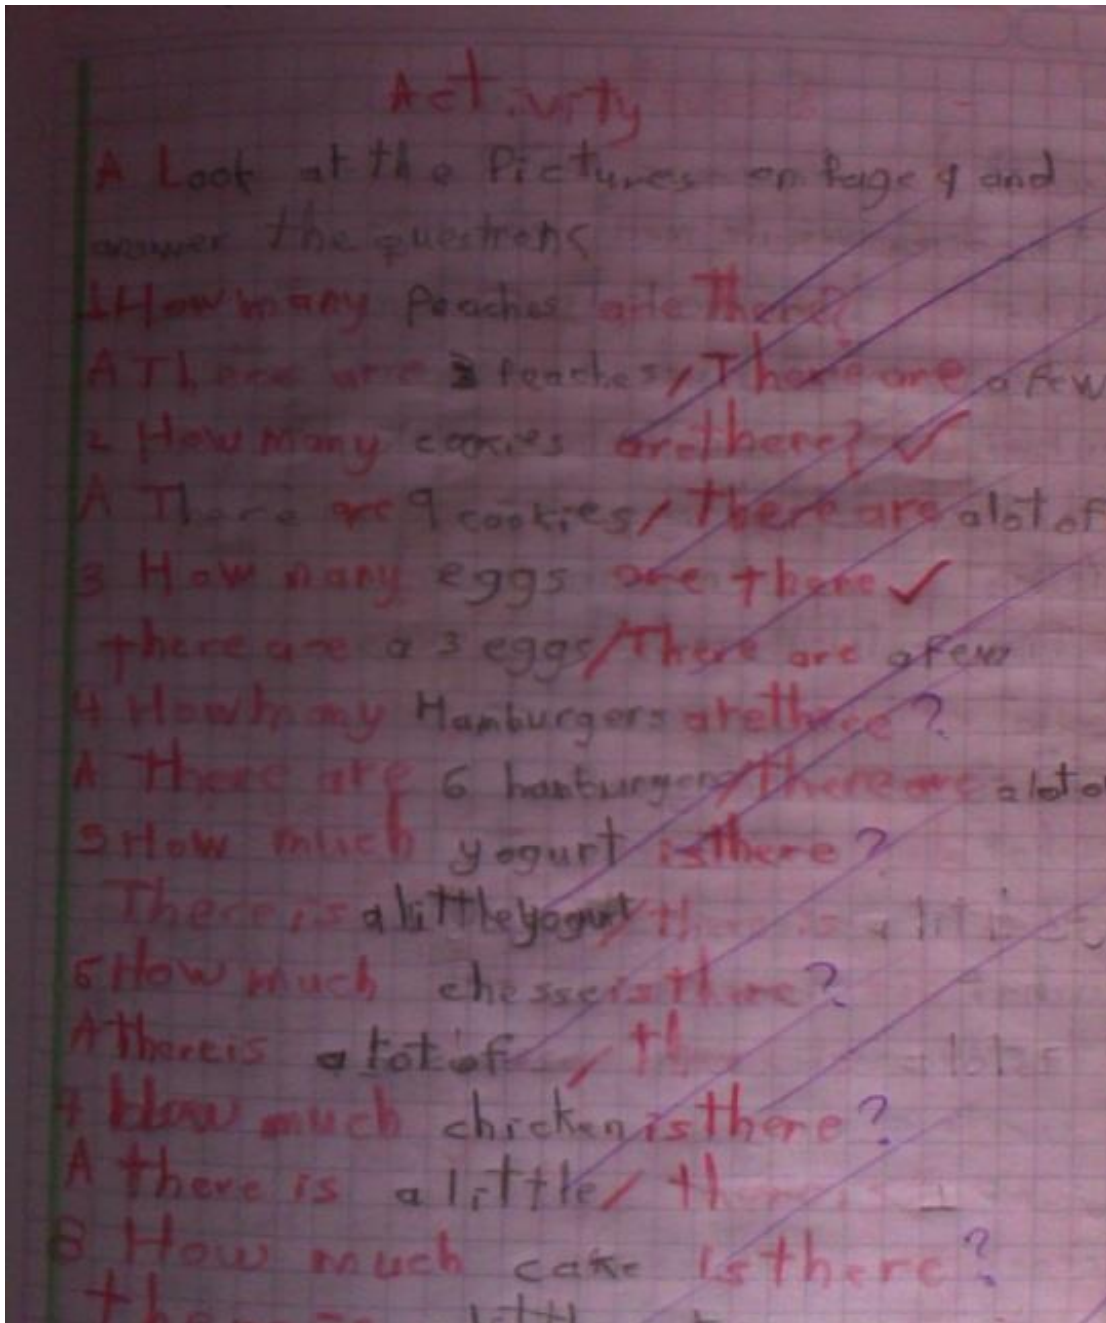 Activity
A Look at the Pictures on Page 9 and
answer the questions
1 How many Peaches are There?
A There are 3 Peaches / There are a few
2 How many cookies are there?
A There are 9 cookies / There are alot of
3 How many eggs are there
there are a 3 eggs / There are a few
4 How many Hamburgers are there?
A There are 6 hamburgers / there are alot of
5 How much yogurt is there?
There is a little yogurt / there is a little
6 How much chesse is there?
A there is a lot of / th
7 How much chicken is there?
A there is a little / there is
8 How much cake is there?